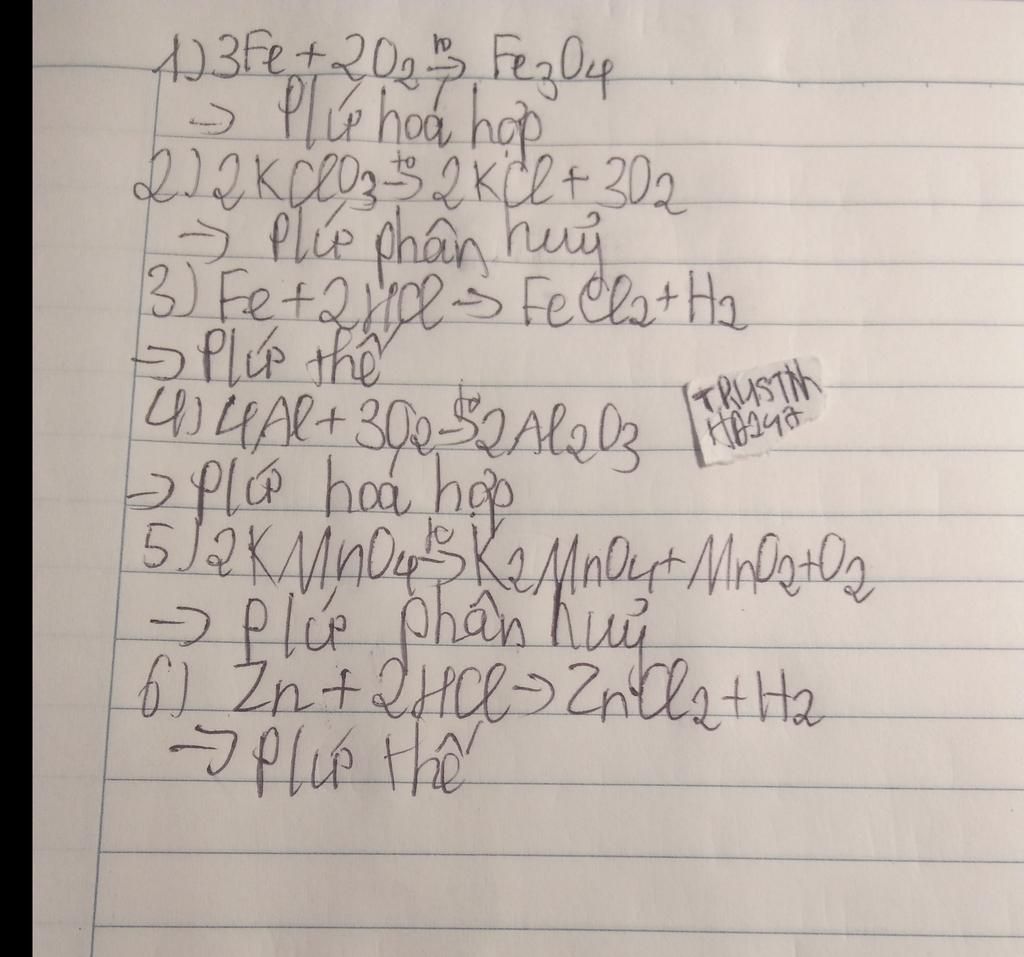 1) 3Fe + 2O2 to→ Fe3O4
→ P/ứ hoá hợp
2) 2KClO3 to→ 2KCl + 3O2
→ P/ứ phân huỷ
3) Fe + 2HCl → FeCl2 + H2
→ P/ứ thế
4) 4Al + 3O2 to→ 2Al2O3
TRUSTNH
→ P/ứ hoá hợp
5) 2KMnO4 to→ K2MnO4 + MnO2 + O2
→ P/ứ phân huỷ
6) Zn + 2HCl → ZnCl2 + H2
→ P/ứ thế